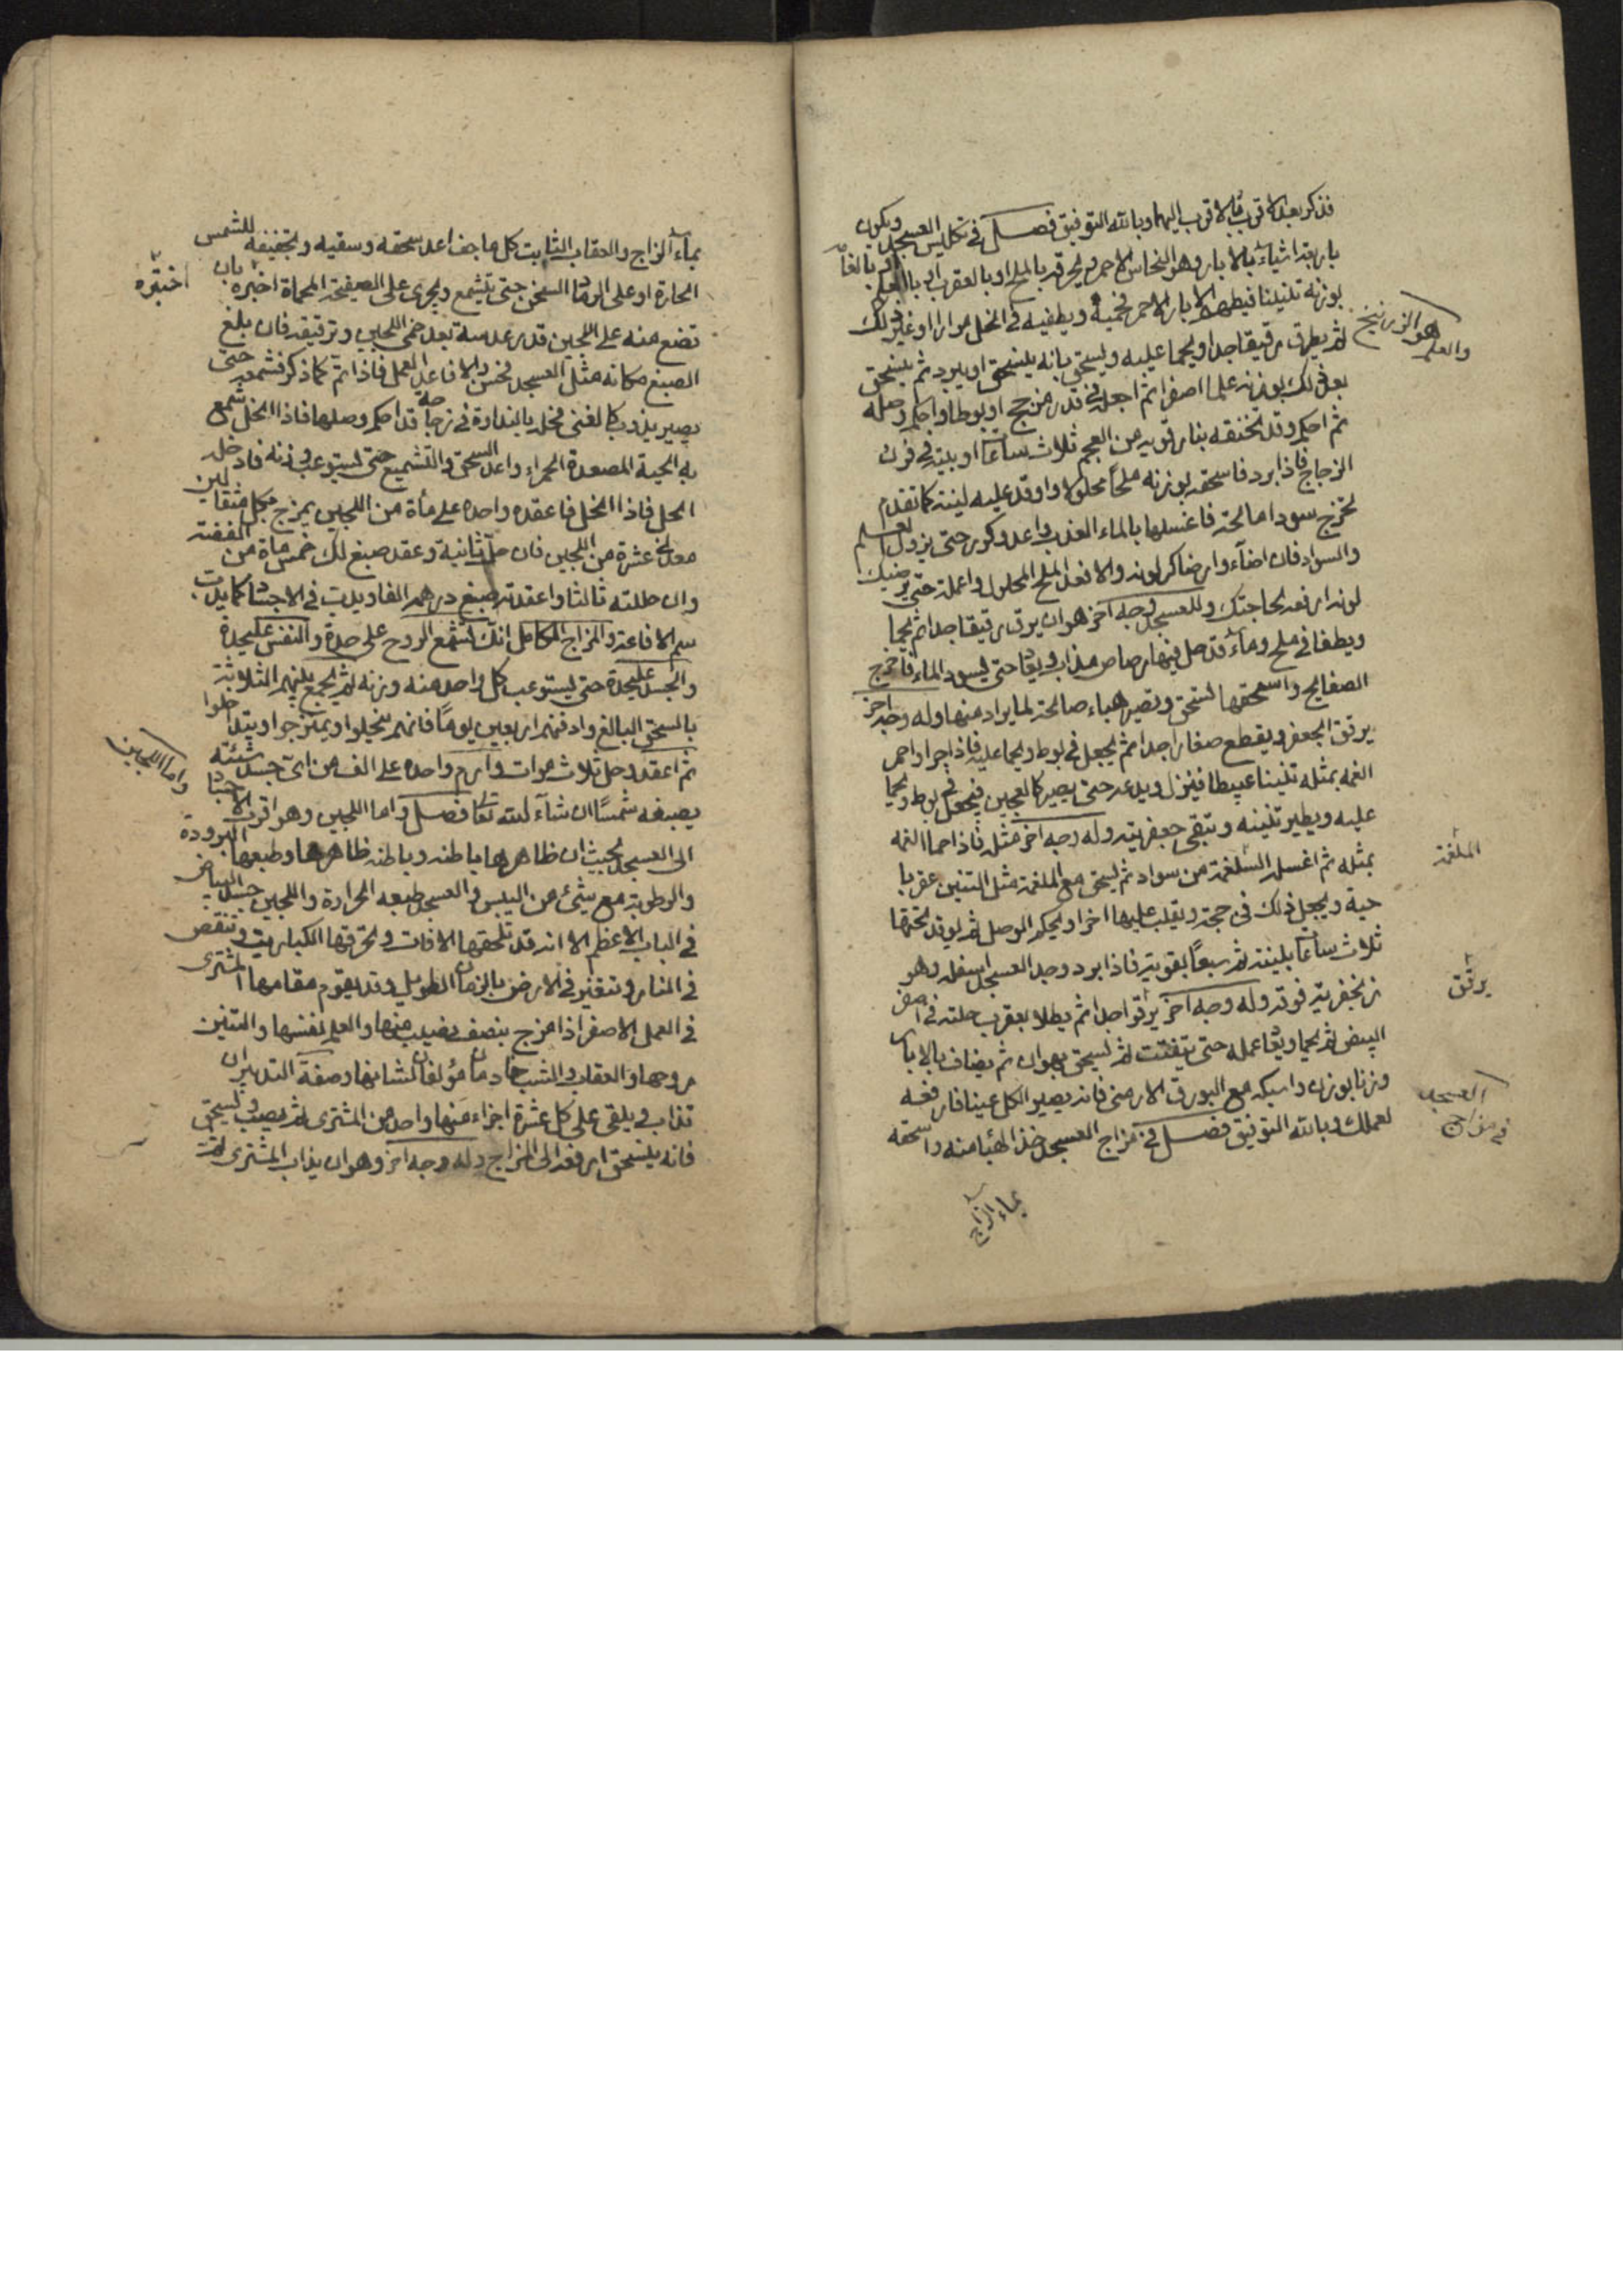 فنذكر بعد الاقرب فالاقرب اليهما وبالله التوفيق فصل في تكليس العسجد ويكون
باربعة اشياء بالابار وهو النحاس الاحمر ويحرق بالملح او بالعقرب او بالعلم
بوزنه تنينا فيطهر الابار الاحمر فحميه ويطفيه في الخل مرارا او غير ذلك
ثم يطرق رقيقا جدا ويحما عليه ويسحق بانه ينسحق او يبرد ثم يسحق
بعد ذلك بوزنه علما اصفر ثم اجعله في قدر من جج او بوطا واحكم وصله
ثم احكم وقد تخنقه بنار قوية من الفحم ثلاث ساعات او بيته في فرن
الزجاج فاذا برد فاسحقه بوزنه ملحا محلولا واوقد عليه لينة كما تقدم
تخرج سودا مالحة فاغسلها بالماء العذب واعد وكرر حتى يزول
والسواد فان اضاء وارضاك لونه والا فعد الملح المحلول واعمله حتى يرضيك
لونه ارفعه لحاجتك وللعسجد وجه اخر هو ان يرق رقيقا جدا ثم يحما
ويطفا في ملح وماء قد حل فيها رصاص مذاب ويعاد حتى يسود الماء فاخرج
الصفايح واسحقها تنسحق وتصير هباء صالحة لما يراد منها وله وجه اخر
يرقق الجعفر ويقطع صغارا جدا ثم يجعل في بوط ويحما عليه فاذا حر واحمر
الغمه بمثله تنينا عبيطا فينزل ويدعه حتى يصير كالعجين فيجعل في بوط ويحما
عليه ويطير تنينه وتبقى جعفريته وله وجه اخر مثله فاذا حما الغمه
بمثله ثم اغسل الملغمة من سواد ثم يسحق مع الملغمة مثل التنين عقربا
حية ويجعل ذلك في جحة ويقلب عليها اخرا ويحكم الوصل ثم يوقد تحتها
ثلاث ساعات بلينة ثم سبعا بقوية فاذا برد وجد العسجد اسفله وهو
زنجفرية فوقه وله وجه اخر يرقوا جدا ثم يطلا بعقرب حلته في اصفر
البيض ثم يحما ويعاد عمله حتى يتفتت ثم يسحق بهوان ثم يضاف بالابار
وزنا بوزن واسبكه مع البورق الارمني فانه يصير الكل عينا فارفعه
لعملك وبالله التوفيق فصل في مزاج العسجد خذ الهبا منه واسحقه
والعلم هو الزرنيخ
الملغمة
يرقق
في مزاج العسجد
بماء الزاج
بماء الزاج والعقاب الثابت كل ما جف اعد سحقه وسقيه وتجفيفه للشمس
الحارة او على الرماد السخن حتى يتشمع ويجرى على الصفيحة المحماة اختبره بان
تضع منه على اللجين قدر عدسة بعد حمي اللجين وترقيقه فان بلغ
الصبغ مكانه مثل العسجد فحسن والا فاعد العمل فاذا تم كما ذكر فشمعه حتى
يصير يذوب كالغني فحله بالنداوة في زجاجه قد احكم وصلها فاذا انحل شمع
به الحية المصعدة الحمراء واعد السحق والتشميع حتى يستوعب وزنه فادخله
الحل فاذا انحل فاعقده واحده على مأة من اللجين يمزج بكل مثقالين
معدلج عشرة من اللجين فان حل ثانية وعقد صبغ لك خمس مأة من الفضة
وان حللته ثالثا واعقدته صبغ درهمه الفا ويدب في الاجساد كما يدب
سم الافاعة والمزاج الكامل انك تشمع الروح على حدة والنفس عليحدة
والجسد عليحدة حتى يستوعب كل واحد منه وزنه ثم يجمع بينهم الثلاثة
بالسحق البالغ وادفنهم اربعين يوما فانهم ينحلوا ويمتزجوا ويتداخلوا
ثم اعقد وحل ثلاث مرات وارم واحده على الف من اى جسد شئته
يصبغه شمسا ان شاء الله تعا فصل واما اللجين وهو اقرب الاجساد
الى العسجد بحيث ان ظاهرها باطنه وباطنه ظاهرها وطبعها البرودة
والرطوبة مع شئ من اليبس والعسجد طبعه الحرارة واللجين جسد البياض
في الباب الاعظم الا انه قد تلحقها الافات وتحرقها الكباريت وتنقص
في النار وتتغير في الارض بالزمان الطويل وقد يقوم مقامها المشترى
في العمل الاصفر اذا مزج بنصف نصيب منها والعلم لنفسها والتنين
روحها والعقاب والشب خادمان مؤلفان لشانها وصفة التدبير ان
تذاب ويلقى على كل عشرة اجزاء منها واحد من المشترى ثم يصب ويسحق
فانه ينسحق ارفعه الى المزاج وله وجه اخر وهو ان يذاب المشترى ثم
اختبره
واما اللجين